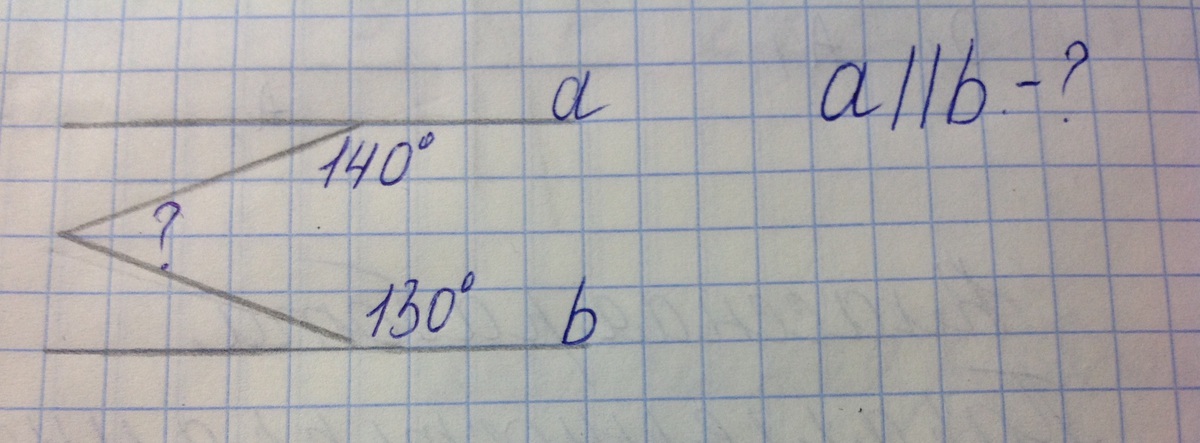 a
a||b - ?
140°
?
130°
b